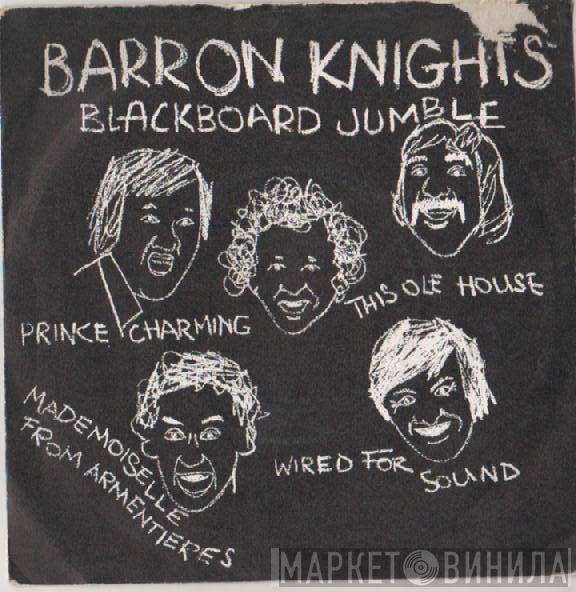 BARRON KNIGHTS
BLACKBOARD JUMBLE
THIS OLE HOUSE
PRINCE CHARMING
MADEMOISELLE
FROM ARMENTIERES
WIRED FOR SOUND
МАРКЕТ ВИНИЛА